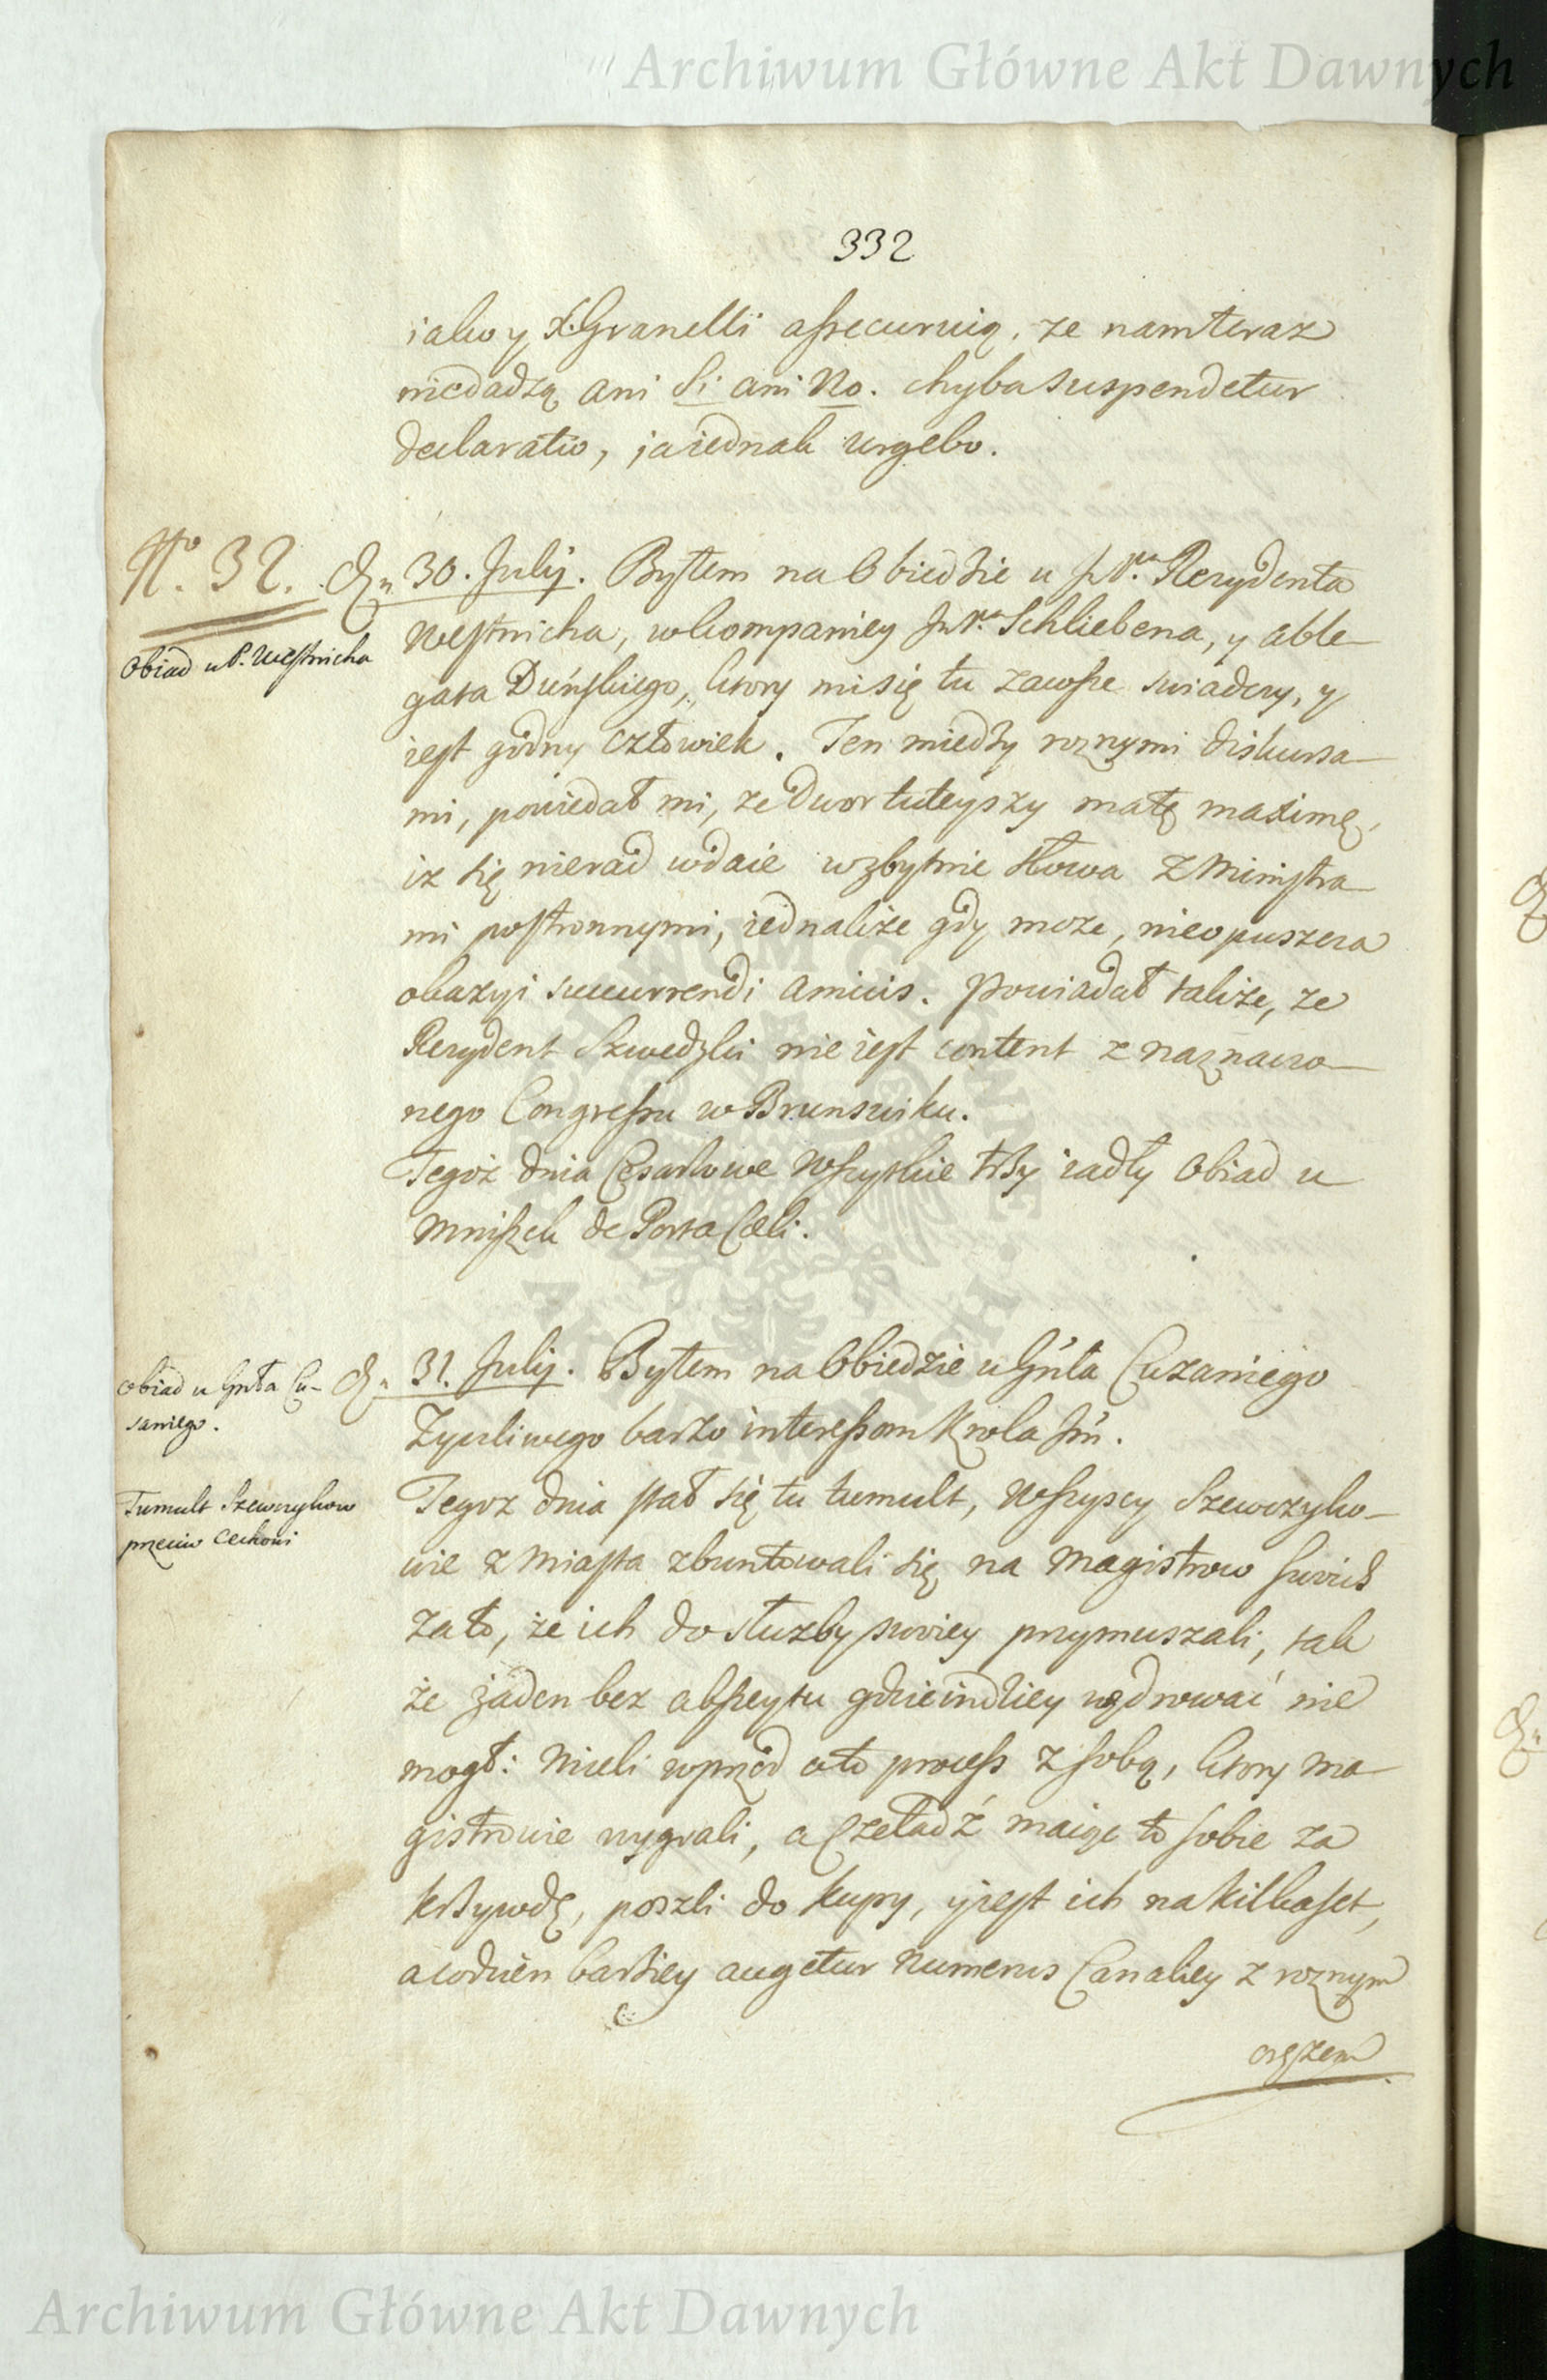 Archiwum Główne Akt Dawnych
332
iako y X. Granelli assecuruią, ze nam teraz
niedadzą ani Si ani No. chyba suspendetur
declaratio, ja iednak urgebo.
No. 32.
Obiad u P. Westnicha
Dn 30. Julij. Byłem na Obiedzie u Rezydenta
Westnicha, w kompaniey Schliebena, y able-
gata Duńskiego, ktory mi się tu zawsze swiadczy, y
iest godny człowiek. Ten miedzy roznymi diskursa-
mi, powiedał mi, ze dwor tuteyszy ma tę maximę,
iz się nierad wdaie w zbytnie słowa z Ministra-
mi postronnymi, iednakże gdy moze, nieopuszcza
okazyi succurrendi amicis. Powiadał takze, ze
Rezydent Szwedzki nie iest content z naznaczo-
nego Congressu w Brunswiku.
Tegoż dnia Cesarzowe wszytkie trzy iadły Obiad u
Mniszek de Porta Cæli.
Obiad u Gnła Cu-
saniego.
Dn 31. Julij. Byłem na Obiedzie u Gńła Cuzaniego
Zyczliwego barzo interessom Krola Jm̃.
Tumult Szewczykow
przeciw Cechowi
Tegoz dnia stał się tu tumult, wszyscy Szewczyko-
wie z miasta zbuntowali się na Magistrow swoich
zato, że ich do służby swoiey przymuszali, tak
że żaden bez abszeytu gdzieindziey wędrować nie
mogł: Mieli wprzod oto process z sobą, ktory ma-
gistrowie wygrali, a Czeladź maiąc to sobie za
krzywdę, poszli do kupy, y iest ich na kilkaset,
a codzień bardziey augetur numerus Canaliey z roznym
orężem
Archiwum Główne Akt Dawnych